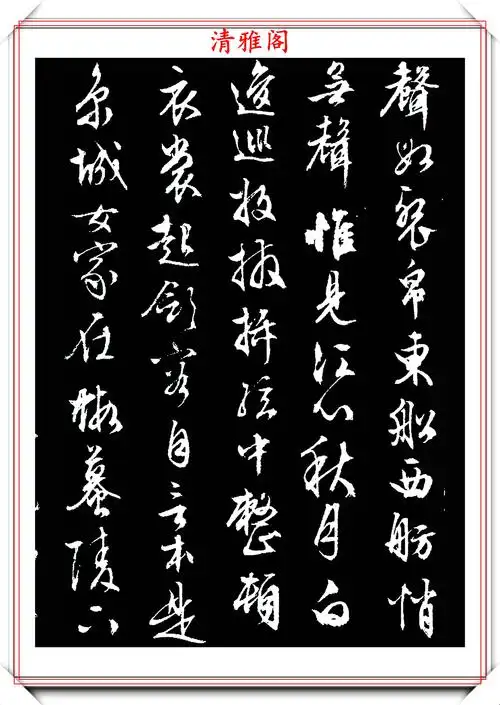 清雅阁
聲如裂帛東船西舫悄
無聲惟見江心秋月白
逡巡放撥插絃中整頓
衣裳起斂容自言本是
京城女家在蝦蟇陵下